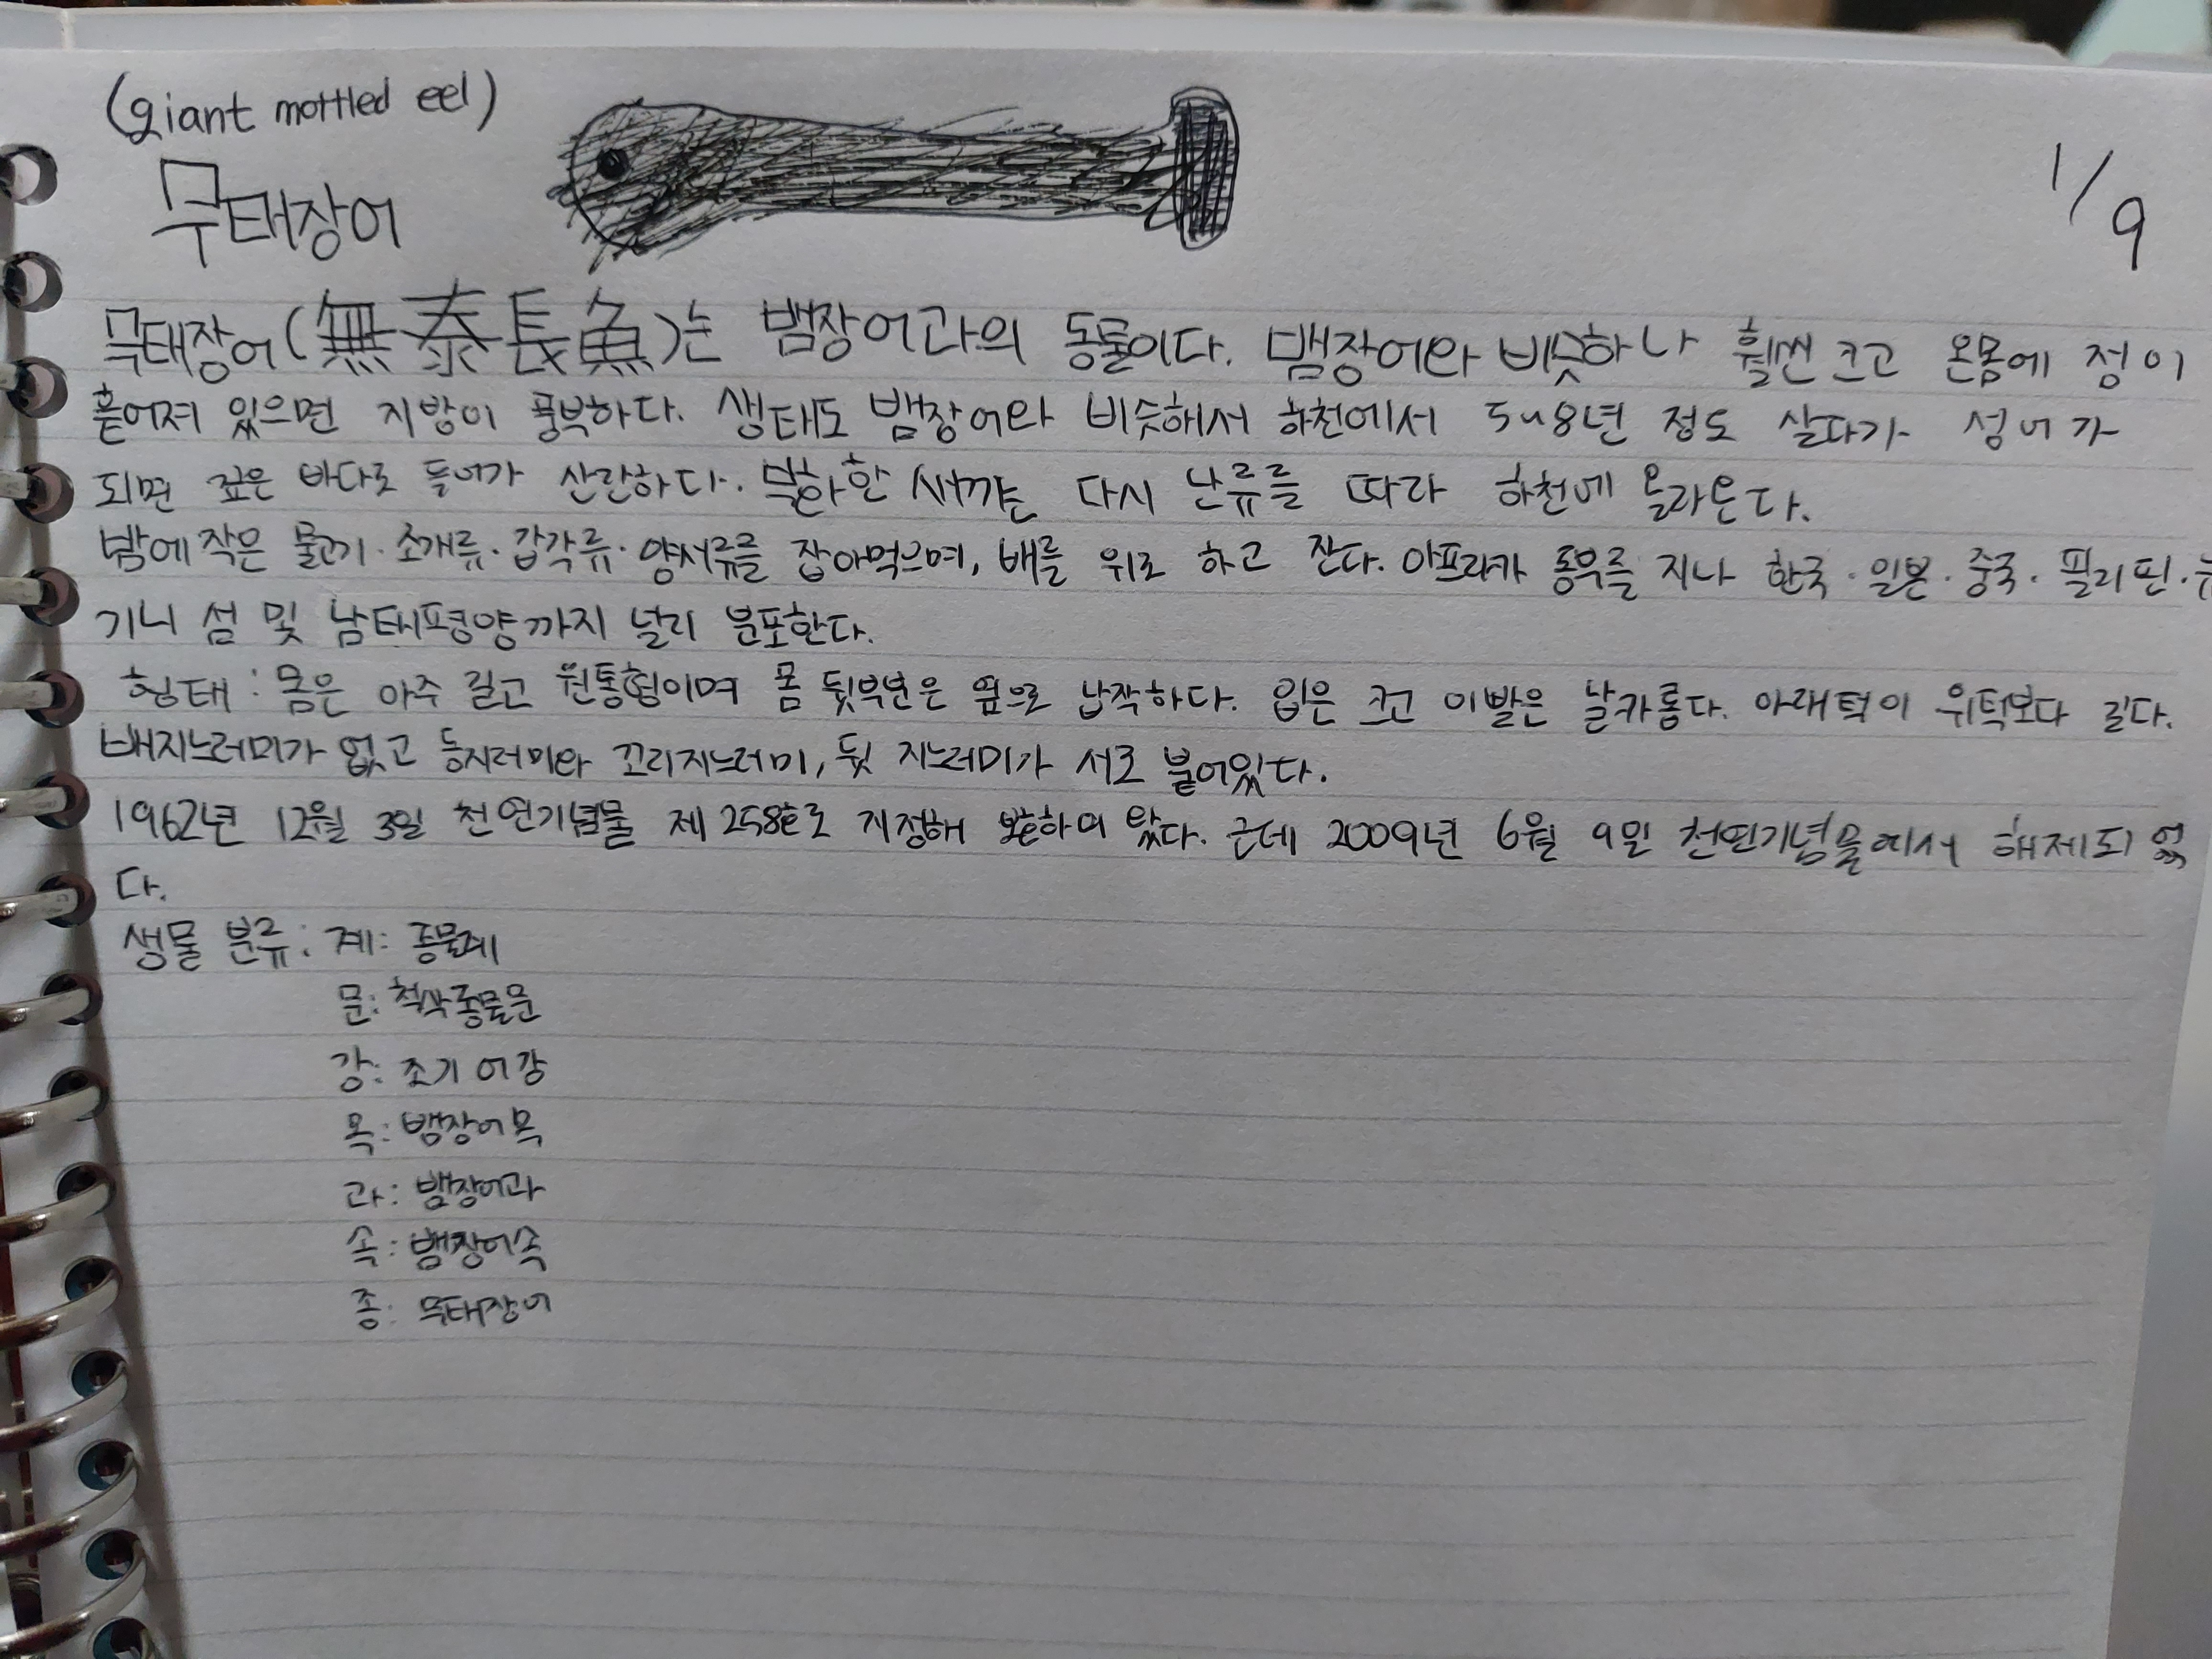 (giant mottled eel)
무태장어
1/9
무태장어(無泰長魚)는 뱀장어과의 동물이다. 뱀장어와 비슷하나 훨씬 크고 온몸에 점이
흩어져 있으면 지방이 풍부하다. 생태도 뱀장어와 비슷해서 하천에서 5~8년 정도 살다가 성어가
되면 깊은 바다로 들어가 산란하다. 부화한 새끼는 다시 난류를 따라 하천에 올라온다.
밤에 작은 물고기·조개류·갑각류·양서류를 잡아먹으며, 배를 위로 하고 잔다. 아프리카 동부를 지나 한국·일본·중국·필리핀·뉴
기니 섬 및 남태평양까지 널리 분포한다.
형태: 몸은 아주 길고 원통형이며 몸 뒷부분은 옆으로 납작하다. 입은 크고 이빨은 날카롭다. 아래턱이 위턱보다 길다.
배지느러미가 없고 등지러미와 꼬리지느러미, 뒷 지느러미가 서로 붙어있다.
1962년 12월 3일 천연기념물 제 258호로 지정해 왔다. 근데 2009년 6월 9일 천연기념물에서 해제되었
다.
생물 분류: 계: 동물계
문: 척삭동물문
강: 조기어강
목: 뱀장어목
과: 뱀장어과
속: 뱀장어속
종: 무태장어